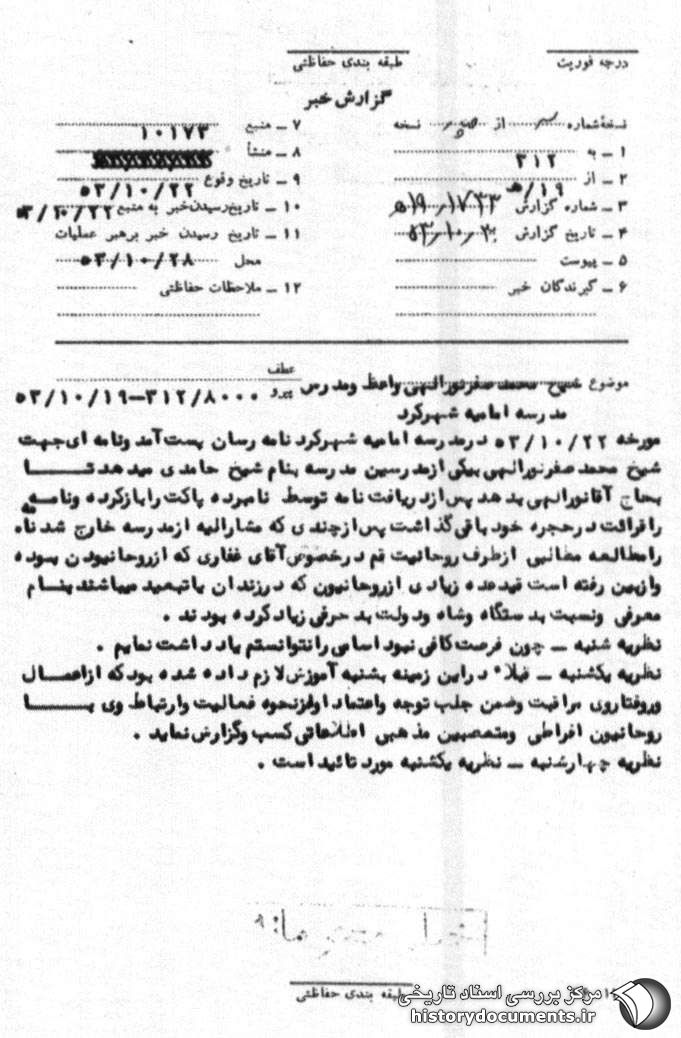 درجه فوریت
طبقه بندی حفاظتی
گزارش خبر
نسخه‌شماره از نسخه
۱ ـ به ۳۱۲
۲ ـ از ۱۹/ه‍
۳ ـ شماره گزارش ۱۷۳۳
۴ ـ تاریخ گزارش ۵۳٫۱۰٫۳۰
۵ ـ پیوست
۶ ـ گیرندگان خبر
۷ ـ منبع ۱۰۱۷۳
۸ ـ منشأ
۹ ـ تاریخ وقوع ۵۳/۱۰/۲۲
۱۰ ـ تاریخ‌رسیدن‌خبر به منبع ۵۳/۱۰/۲۲
۱۱ ـ تاریخ رسیدن خبر برهبر عملیات
محل ۵۳/۱۰/۲۸
۱۲ ـ ملاحظات حفاظتی
موضوع شیخ محمد صفرنورالهی واعظ ومدرس
مدرسه امامیه شهرکرد
عطف
پیرو ۳۱۲/۸۰۰۰–۵۳/۱۰/۱۹
مورخه ۵۳/۱۰/۲۲ درمدرسه امامیه شهرکرد نامه رسان پست آمد ونامه ای جهت
شیخ محمد صفرنورالهی بیکی ازمدرسین مدرسه بنام شیخ حامدی میدهد تا
بحاج آقانورالهی بدهد پس ازدریافت نامه توسط نامبرده پاکت رابازکرده ونامه
راقرائت درحجره خود باقی گذاشت پس ازچندی که مشارالیه ازمدرسه خارج شد نامه
رامطالعه مطالبی ازطرف روحانیت قم درخصوص آقای غفاری که ازروحانیون بوده
وازبین رفته است قیدعده زیادی ازروحانیون که درزندان یاتبعید میباشند بنام
معرفی ونسبت بدستگاه وشاه ودولت بد حرفی زیادکرده بودند .
نظریه شنبه ـ چون فرصت کافی نبود اسامی رانتوانستم یادداشت نمایم .
نظریه یکشنبه ـ قبلا" دراین زمینه بشنبه آموزش لازم داده شده بود که ازاعمال
ورفتاروی مراقبت وضمن جلب توجه واعتماد اوازنحوه فعالیت وارتباط وی با
روحانیون افراطی ومتعصبین مذهبی اطلاعاتی کسب وگزارش نماید .
نظریه چهارشنبه ـ نظریه یکشنبه مورد تائید است .
طبقه بندی حفاظتی
مرکز بررسی اسناد تاریخی
historydocuments.ir